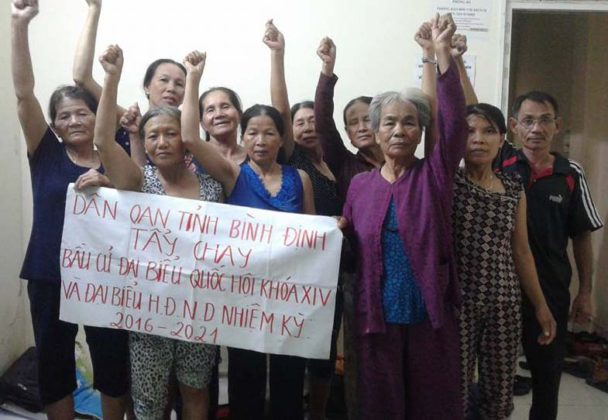 DÂN OAN TỈNH BÌNH ĐỊNH
TẨY CHAY
BẦU CỬ ĐẠI BIỂU QUỐC HỘI KHÓA XIV
VÀ ĐẠI BIỂU H.Đ.N.D NHIỆM KỲ.
2016-2021
PUMA